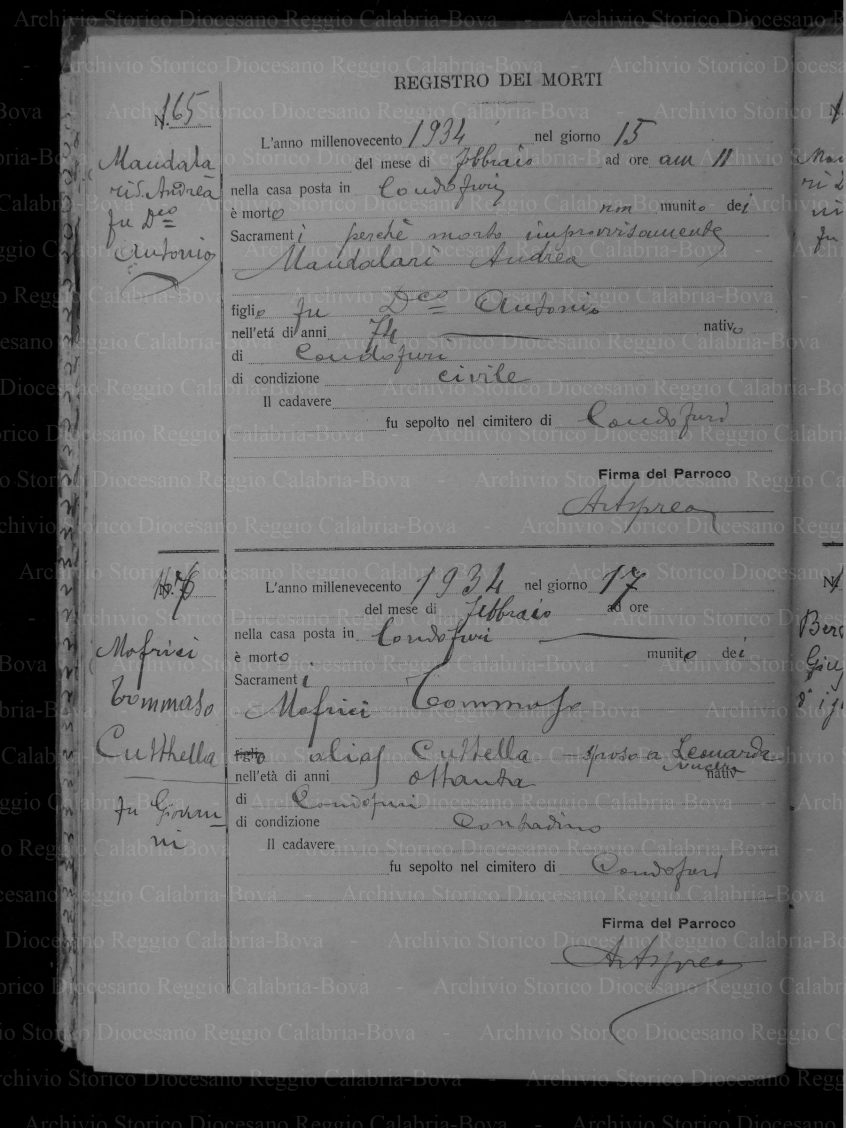 REGISTRO DEI MORTI
N. 165
Mandala
ri S. Andrea
fu Dco
Antonio
L'anno millenovecento 1934 nel giorno 15
del mese di febbraio ad ore am 11
nella casa posta in Condofuri
è morto non munito dei
Sacramenti perchè morto improvvisamente
Mandalari Andrea
figlio fu Dco Antonio
nell'etá di anni 74 nativo
di Condofuri
di condizione civile
Il cadavere
fu sepolto nel cimitero di Condofuri
Firma del Parroco
N.
Mafrici
Tommaso
Cutthella
fu Giovan-
ni
L'anno millenovecento 1934 nel giorno 17
del mese di febbraio ad ore
nella casa posta in Condofuri
è morto munito dei
Sacramenti
Mafrici Tommaso
figlio alias Cuttella - sposo a Leonarda
nell'età di anni ottanta nativ
di Condofuri
di condizione Contadino
Il cadavere
fu sepolto nel cimitero di Condofuri
Firma del Parroco
Archivio Storico Diocesano Reggio Calabria-Bova